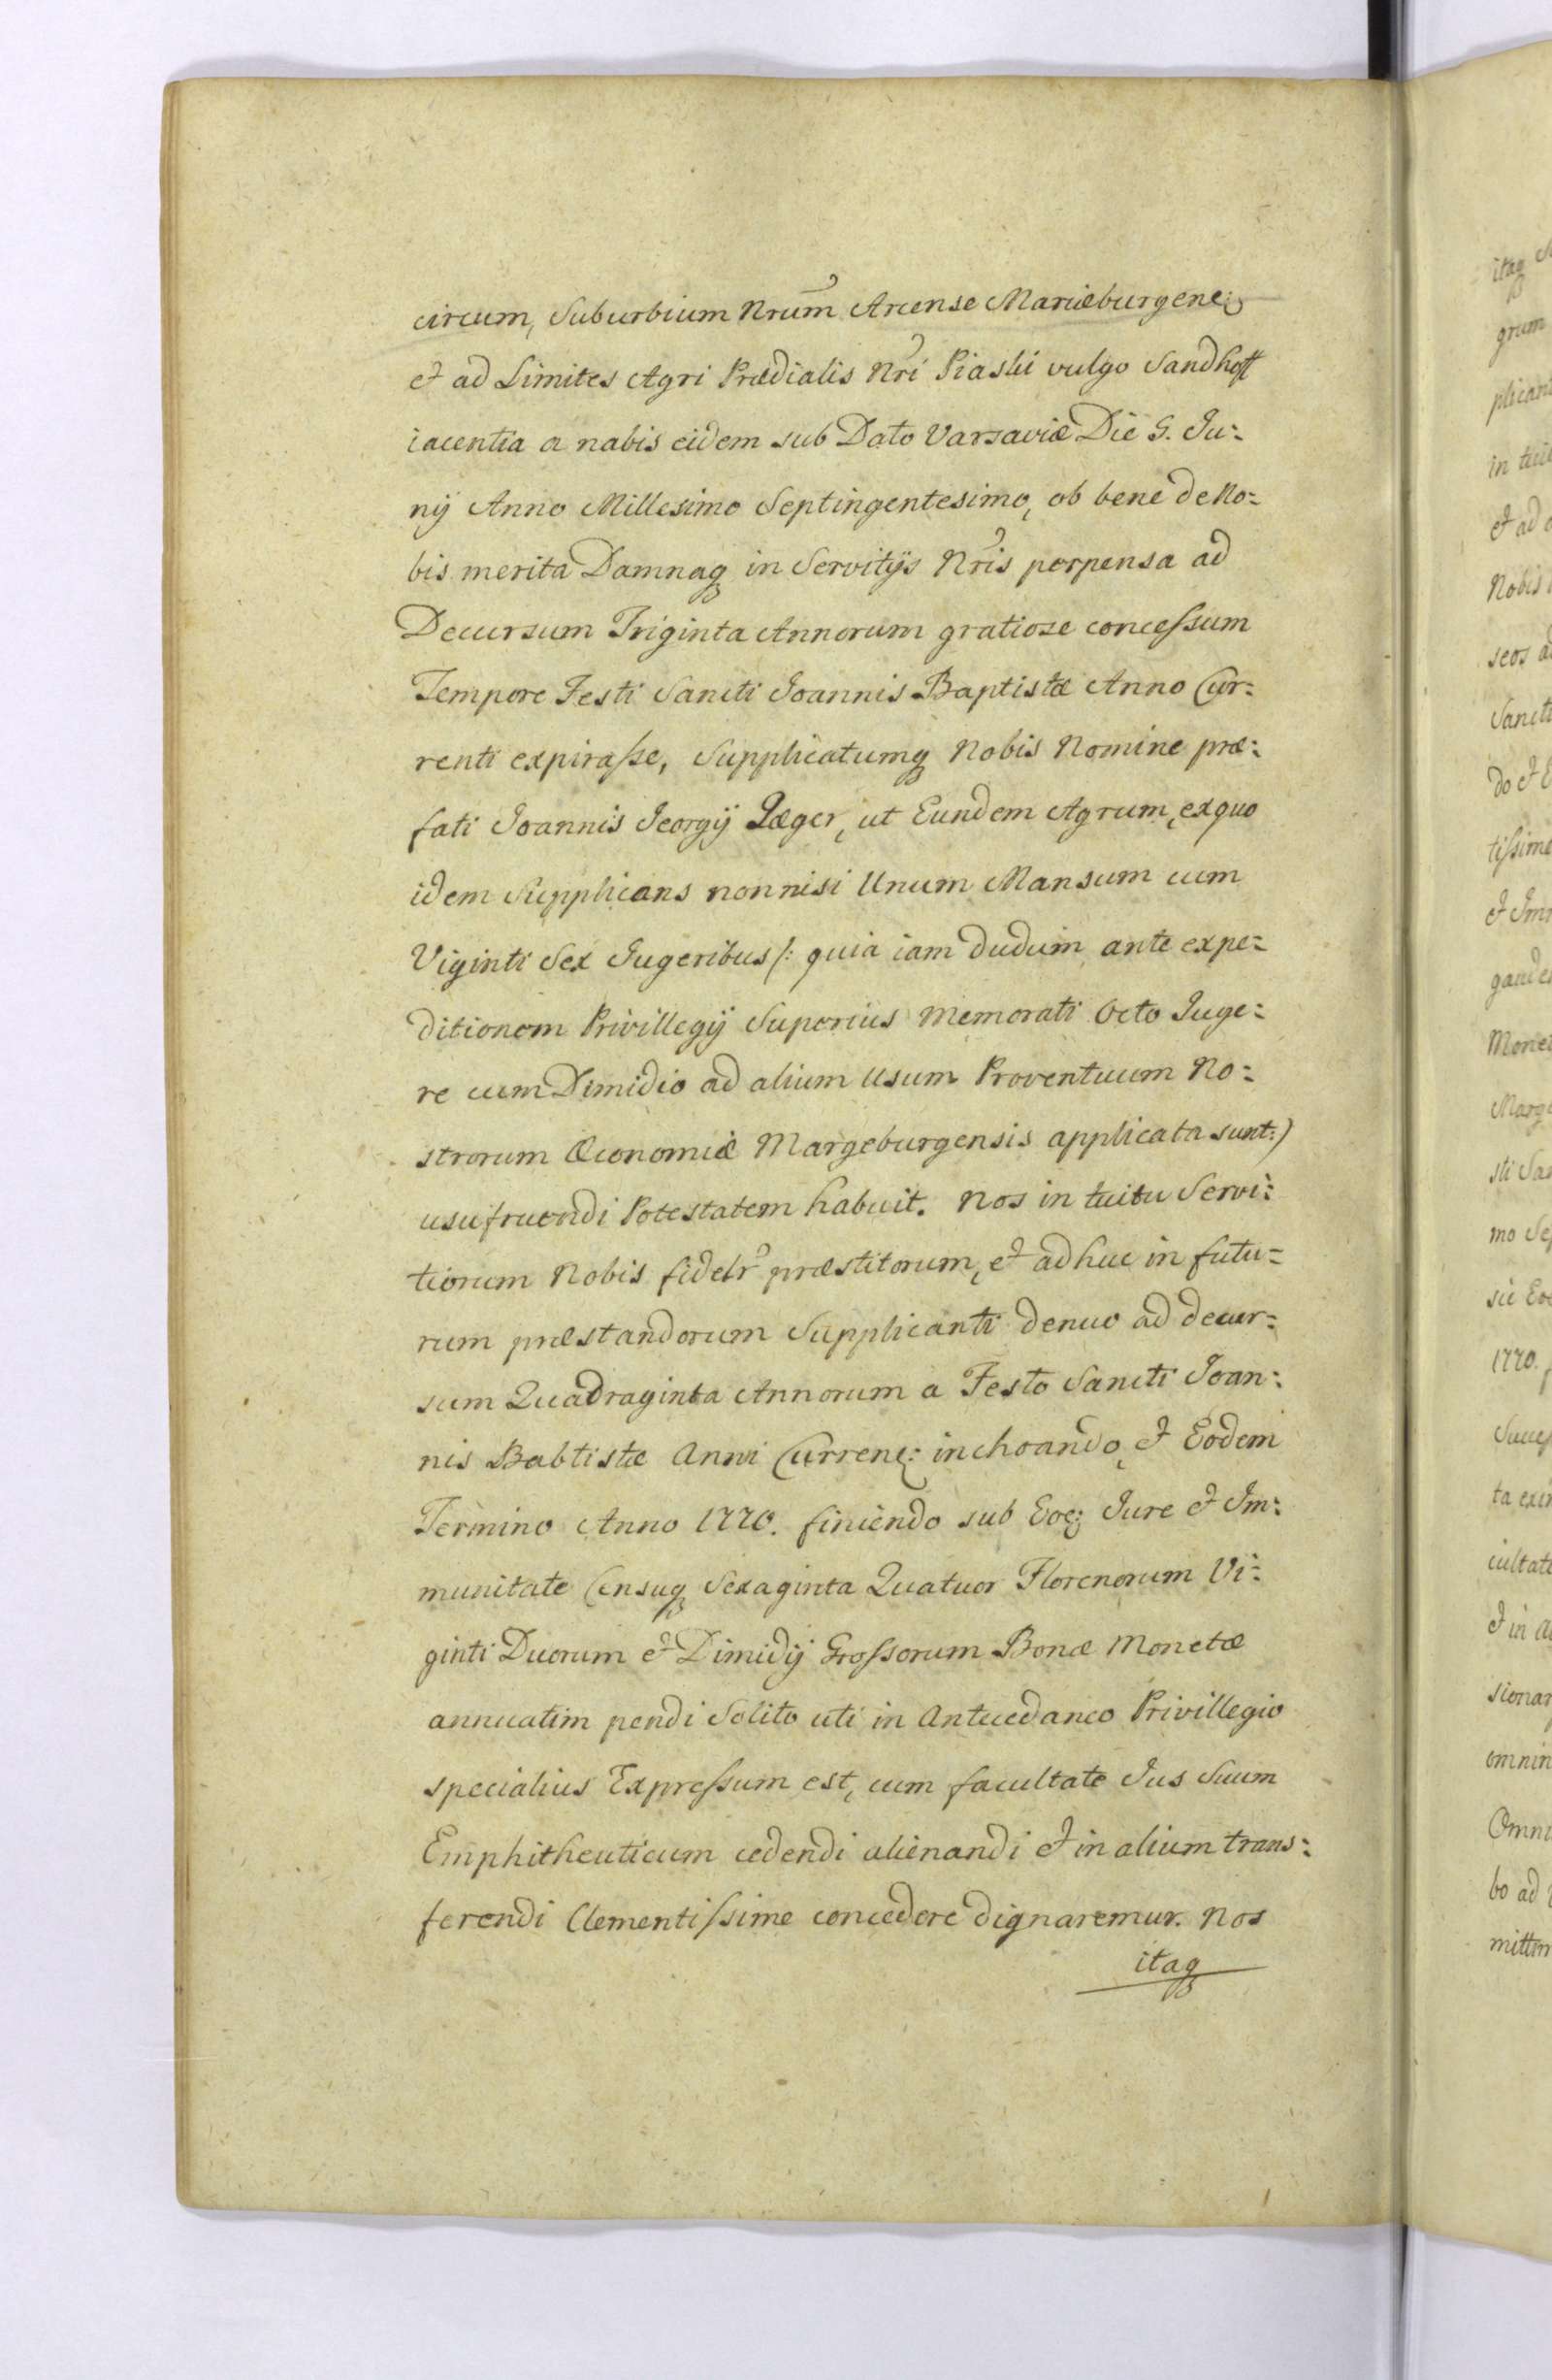 circum, Suburbium Nrum̃ Arcense Mariæburgenẽ;
et ad Limites Agri Prædialis Nr̃i Piaski vulgo Sandhoff
iacentia a nabis eidem sub Dato Varsaviæ Die 5. Ju:
nÿ Anno Millesimo Septingentesimo, ob bene de No:
bis merita Damnaq; in Servitÿs Nr̃is perpensa ad
Decursum Triginta Annorum gratiose concessum
Tempore Festi Sancti Joannis Baptistæ Anno Cur:
renti expirasse, Supplicatumq; Nobis Nomine præ:
fati Joannis Jeorgÿ Jæger, ut Eundem Agrum, ex quo
idem Supplicans non nisi Unum Mansum cum
Viginti Sex Jugeribus /: quia iam dudum ante expe:
ditionem Privillegÿ Superius memorati Octo Juge:
re cum Dimidio ad alium Usum Proventuum No:
strorum Œconomiæ Margeburgensis applicata sunt:)
usufruendi Potestatem habuit. Nos in tuitu Servi:
tiorum Nobis fidelr̃ præstitorum, et ad huc in futu:
rum præstandorum Supplicanti denuo ad decur:
sum Quadraginta Annorum a Festo Sancti Joan:
nis Babtistæ Anni Curren: inchoando, et Eodem
Termino Anno 1770. finiendo sub Eoq; Jure et Im:
munitate Censuq; Sexaginta Quatuor Florenorum Vi:
ginti Duorum et Dimidÿ Grossorum Bonæ Monetæ
annuatim pendi Solito uti in Antecedaneo Privillegio
specialius Expressum est, cum facultate Jus Suum
Emphitheuticum cedendi alienandi et in alium trans:
ferendi Clementissime concedere dignaremur. Nos
itaq;